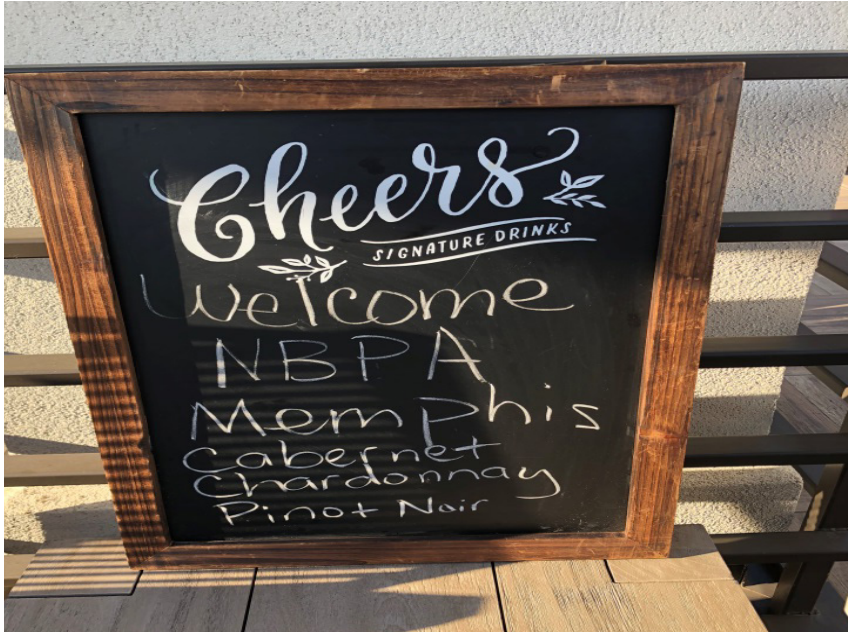 Cheers
SIGNATURE DRINKS
Welcome
NBPA
Memphis
Cabernet
Chardonnay
Pinot Noir